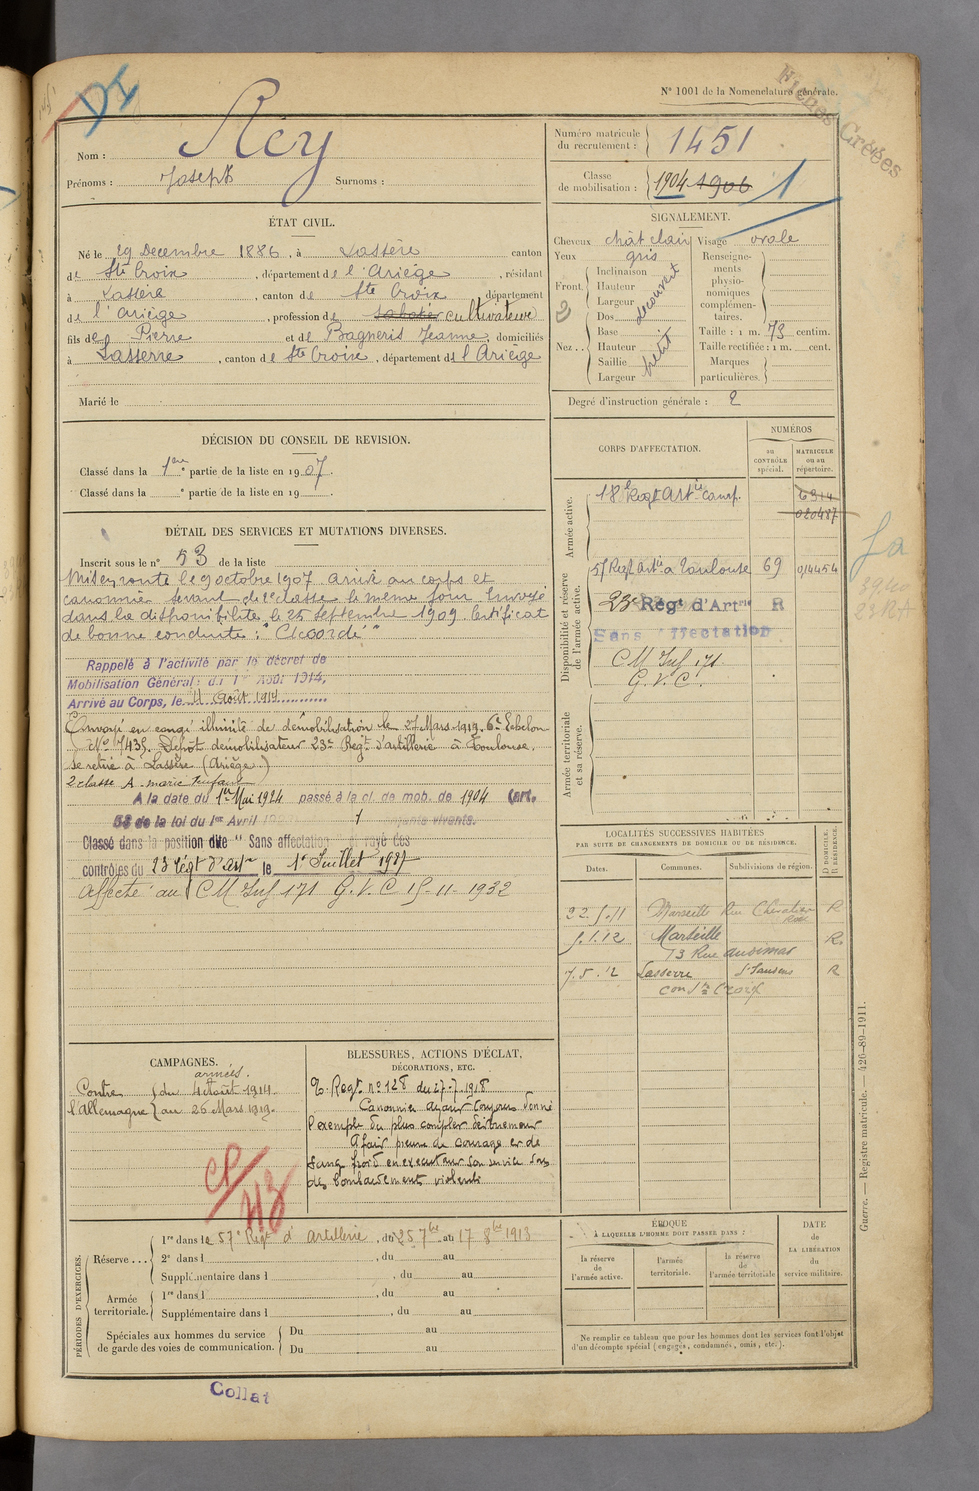 DI
N° 1001 de la Nomenclature générale.
Fiches Créées
Nom : Rey
Prénoms : Joseph Surnoms :
Numéro matricule du recrutement : 1451
Classe de mobilisation : 1904 1906 1
ÉTAT CIVIL.
Né le 19 Decembre 1886, à Lassère canton
de Ste Croix, département de l'Ariège, résidant
à Lassère, canton de Ste Croix département
de l'Ariège, profession de sabotier cultivateur
fils de Pierre et de Bagneris Jeanne, domiciliés
à Lasserre, canton de Ste Croix, département de l'Ariège
Marié le
SIGNALEMENT.
Cheveux chât clair Visage ovale
Yeux gris
Front. Inclinaison
Hauteur
Largeur
découvert
Nez . . Dos
Base
Hauteur
Saillie
Largeur
petit
Renseignements physionomiques complémentaires.
Taille : 1 m. 73 centim.
Taille rectifiée : 1 m. cent.
Marques particulières.
Degré d'instruction générale : 2
DÉCISION DU CONSEIL DE REVISION.
Classé dans la 1ère partie de la liste en 1907.
Classé dans la e partie de la liste en 19
DÉTAIL DES SERVICES ET MUTATIONS DIVERSES.
Inscrit sous le n° 53 de la liste
Mis en route le 9 octobre 1907 arrivé au corps et
canonnier servant de 2e classe le même jour. Envoyé
dans la disponibilité le 25 Septembre 1909 Certificat
de bonne conduite : "Accordé"
Rappelé à l'activité par le décret de
Mobilisation Générale du 1er Août 1914,
Arrivé au Corps, le 4 Août 1914
Envoyé en congé illimité de démobilisation le 27 Mars 1919. 6e Echelon
N° 7435. Dépôt démobilisateur 23e Régt d'artillerie à Toulouse.
se retire à Lassère (Ariège)
2 classe A - marié 1 enfant
A la date du 1er Mai 1924 passé à la cl. de mob. de 1904 (art.
58 de la loi du 1er Avril 1 enfants vivants.
Classé dans la position dite "Sans affectation" et rayé des
contrôles du 23 Régt d'Art le 1er Juillet 1927
Affecté au CM Inf 171 G.V.C 15-11-1932
CORPS D'AFFECTATION.
NUMÉROS
au CONTRÔLE spécial.
MATRICULE ou au répertoire.
Armée active.
18e Regt Artie camp. 6314
020487
Disponibilité et réserve de l'armée active.
57 Regt Artie à Toulouse 69 014454
23e Régt d'Artie R
Sans affectation
CM Inf 171
G.V.C.
Armée territoriale et sa réserve.
LOCALITÉS SUCCESSIVES HABITÉES
PAR SUITE DE CHANGEMENTS DE DOMICILE OU DE RÉSIDENCE.
Dates. Communes. Subdivisions de région. D DOMICILE. R RÉSIDENCE.
22.5.11 Marseille Rue Chevalier R
5.1.12 Marseille R
73 Rue
7.5.12 Lasserre St Gaudens R
con Ste Croix
CAMPAGNES.
Contre l'Allemagne
armées.
du 4 Août 1914.
au 26 Mars 1919.
BLESSURES, ACTIONS D'ÉCLAT,
DÉCORATIONS, ETC.
C. Regt n° 128 du 27-7-1918
Canonnier ayant toujours donné
l'exemple du plus complet dévouement
A fait preuve de courage et de
sang froid en exécutant son service sous
des bombardements violents
PÉRIODES D'EXERCICES.
Réserve . . .
1re dans le 57e Régt d'artillerie, du 25 7bre au 17 8bre 1913
2e dans l , du au
Supplémentaire dans l , du au
Armée territoriale.
1re dans l , du au
Supplémentaire dans l , du au
Spéciales aux hommes du service de garde des voies de communication.
Du au
Du au
ÉPOQUE
À LAQUELLE L'HOMME DOIT PASSER DANS :
la réserve de l'armée active.
l'armée territoriale.
la réserve de l'armée territoriale
DATE de LA LIBÉRATION du service militaire.
Ne remplir ce tableau que pour les hommes dont les services font l'objet
d'un décompte spécial (engagés, condamnés, omis, etc.).
Guerre. — Registre matricule. — 426-89-1911.
Collat